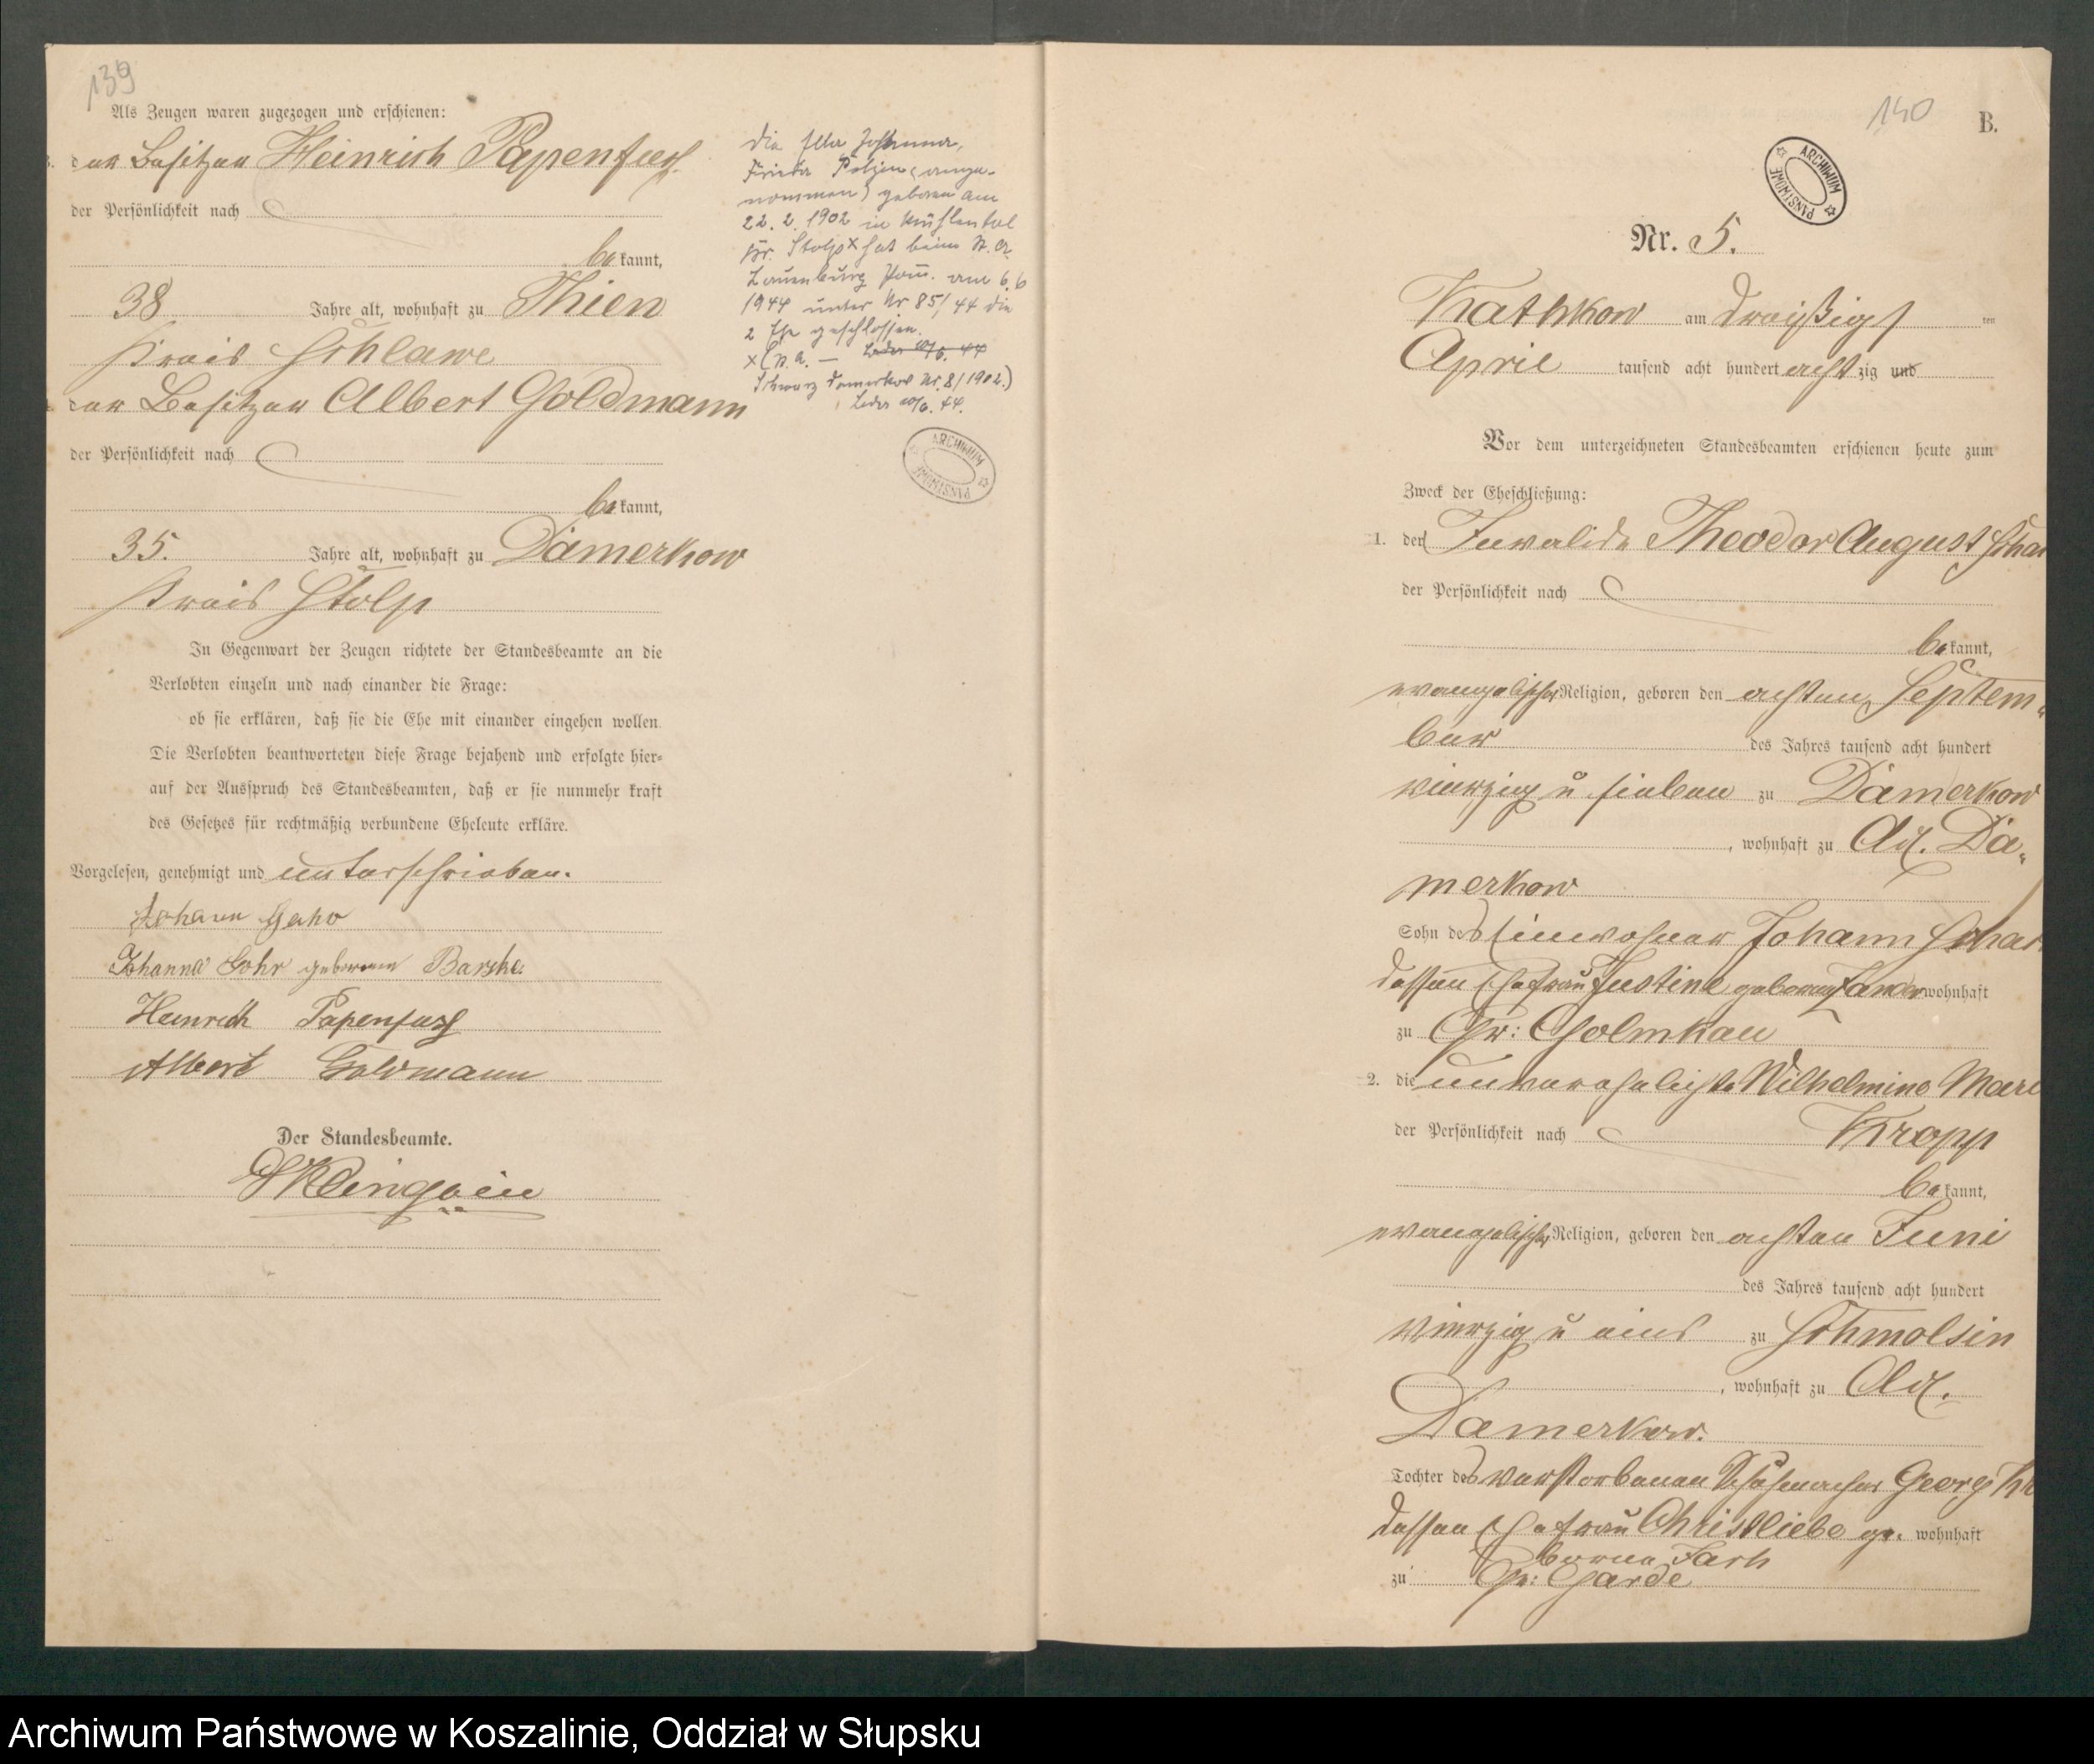 139
Als Zeugen waren zugezogen und erschienen:
der Besitzer Heinrich Papenfuß.
der Persönlichkeit nach
bekannt,
38 Jahre alt, wohnhaft zu Thien
Kreis Schlawe
der Besitzer Albert Goldmann
der Persönlichkeit nach
bekannt,
35. Jahre alt, wohnhaft zu Damerkow
Kreis Stolp
In Gegenwart der Zeugen richtete der Standesbeamte an die
Verlobten einzeln und nach einander die Frage:
ob sie erklären, daß sie die Ehe mit einander eingehen wollen
Die Verlobten beantworteten diese Frage bejahend und erfolgte hier-
auf der Ausspruch des Standesbeamten, daß er sie nunmehr kraft
des Gesetzes für rechtmäßig verbundene Eheleute erkläre.
Vorgelesen, genehmigt und unterschrieben.
Johann
Johanna Gohr geborene
Heinrich Papenfuß
Albert Goldmann
Der Standesbeamte.
Die Ella Johanna,
Frieda Polzin (ange-
nommen) geboren am
22. 2. 1902 in Mühlental
Kr. Stolp x hat beim St. A.
Lauenburg Pom. am 6. 6
1944 unter Nr 85/44 die
2 Ehe geschlossen.
x (St. A. —
Schwarz Damerkow Nr. 8/1902.)
ARCHIWUM PAŃSTWOWE
140
B.
ARCHIWUM PAŃSTWOWE
Nr. 5.
Kathkow am dreißigsten
April tausend acht hundert achtzig und
Vor dem unterzeichneten Standesbeamten erschienen heute zum
Zweck der Eheschließung:
1. der Invalide Theodor August
der Persönlichkeit nach
bekannt,
evangelischer Religion, geboren den achten Septem-
ber des Jahres tausend acht hundert
vierzig u sieben zu Damerkow
, wohnhaft zu Adl. Da-
merkow
Sohn des Einwohner Johann
dessen Ehefrau Justine geborene wohnhaft
zu Gr: Golmkau
2. die unverehelichte Wilhelmine
der Persönlichkeit nach Kropp
bekannt,
evangelischer Religion, geboren den achten Juni
des Jahres tausend acht hundert
vierzig u eins zu Schmolsin
, wohnhaft zu Adl.
Damerkow.
Tochter des verstorbenen Georg
dessen Ehefrau Christliebe ge- wohnhaft
borene
zu Gr: Garde
Archiwum Państwowe w Koszalinie, Oddział w Słupsku